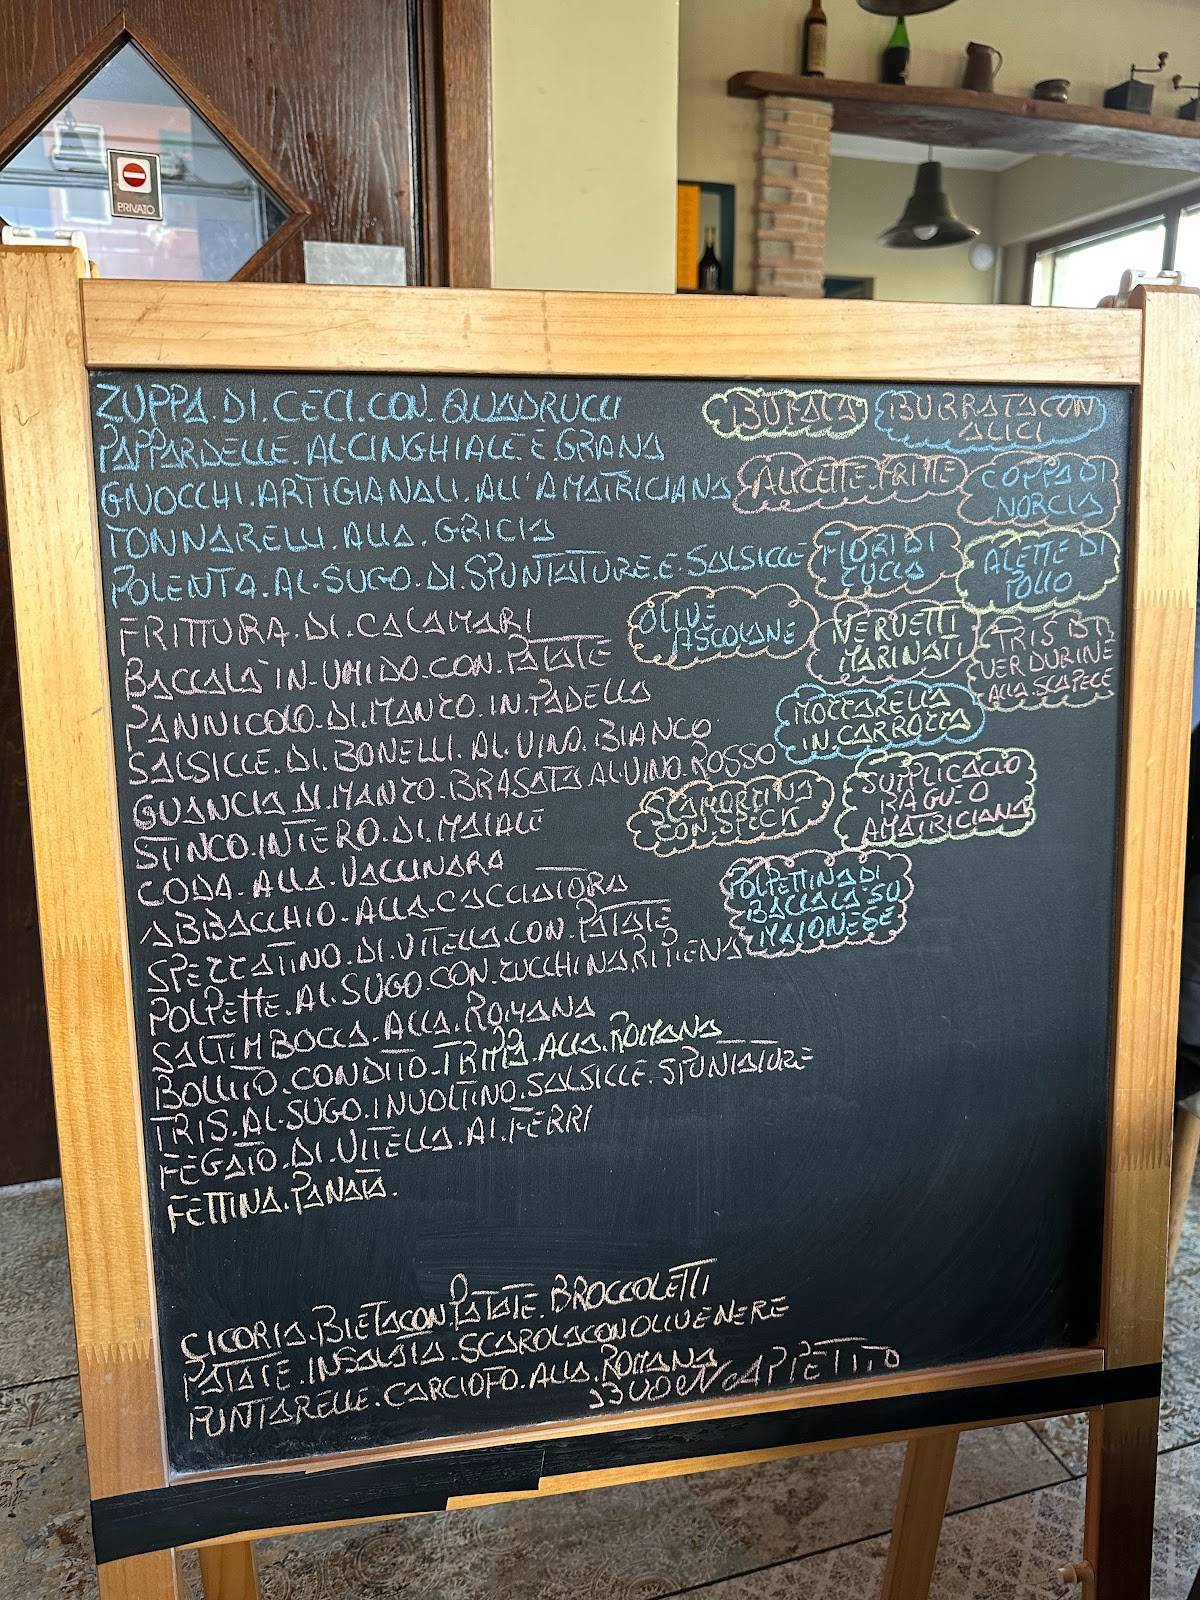 PRIVATO
ZUPPA.DI.CECI.CON.QUADRUCCI
PAPPARDELLE.AL.CINGHIALE E GRANA
GNOCCHI.ARTIGIANALI.ALL'AMATRICIANA
TONNARELLI.ALLA.GRICIA
POLENTA.AL.SUGO.DI.SPUNTATURE.E.SALSICCE
FRITTURA.DI.CALAMARI
BACCALÀ IN-UMIDO.CON.PATATE
PANNICOLO.DI.MANZO.IN.PADELLA
SALSICCE.DI.BONELLI.AL.VINO.BIANCO
GUANCIA DI.MANZO.BRASATA AL VINO.ROSSO
STINCO.INTERO.DI.MAIALE
CODA.ALLA.VACCINARA
ABBACCHIO.ALLA.CACCIATORA
SPEZZATINO.DI.VITELLA.CON.PATATE
POLPETTE.AL.SUGO.CON.ZUCCHINA RIPIENA
SALTIMBOCCA.ALLA.ROMANA
BOLLITO.CONDITO-TRIPPA.ALLA.ROMANA
TRIS.AL.SUGO.INVOLTINO.SALSICCE.SPUNTATURE
FEGATO.DI.VITELLA.AI.FERRI
FETTINA.PANATA.
BUFALA
BURRATA CON
ALICI
ALICETTE.FRITTE
COPPA DI
NORCIA
FIORI DI
ZUCCA
ALETTE DI
POLLO
OLIVE
ASCOLANE
NERVETTI
MARINATI
TRIS DI
VERDURINE
ALLA SCAPECE
MOZZARELLA
IN CARROZZA
SCAMORZINA
CON.SPECK
SUPPLI CACIO
RAGU-O
AMATRICIANA
POLPETTINA DI
BACCALA SU
MAIONESE
CICORIA.BIETA CON.PATATE.BROCCOLETTI
PATATE.INSALATA.SCAROLA CON OLIVE NERE
PUNTARELLE.CARCIOFO.ALLA.ROMANA
BUON APPETITO